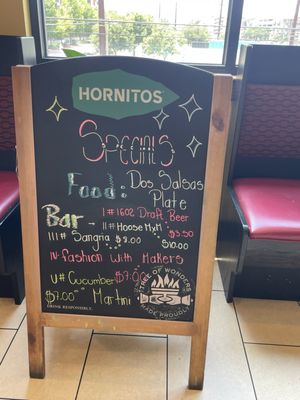 HORNITOS
Specials
Food: Dos Salsas
Plate
Bar - I# 1602 Draft Beer
II# Hoose MxM $3.50
III# Sangria $9.00 $10.00
IV. fashion with Makers
V# Cucumber $7.00
$7.00 Martini
STATE OF WONDERS
MADE PROUDLY
DRINK RESPONSIBLY.